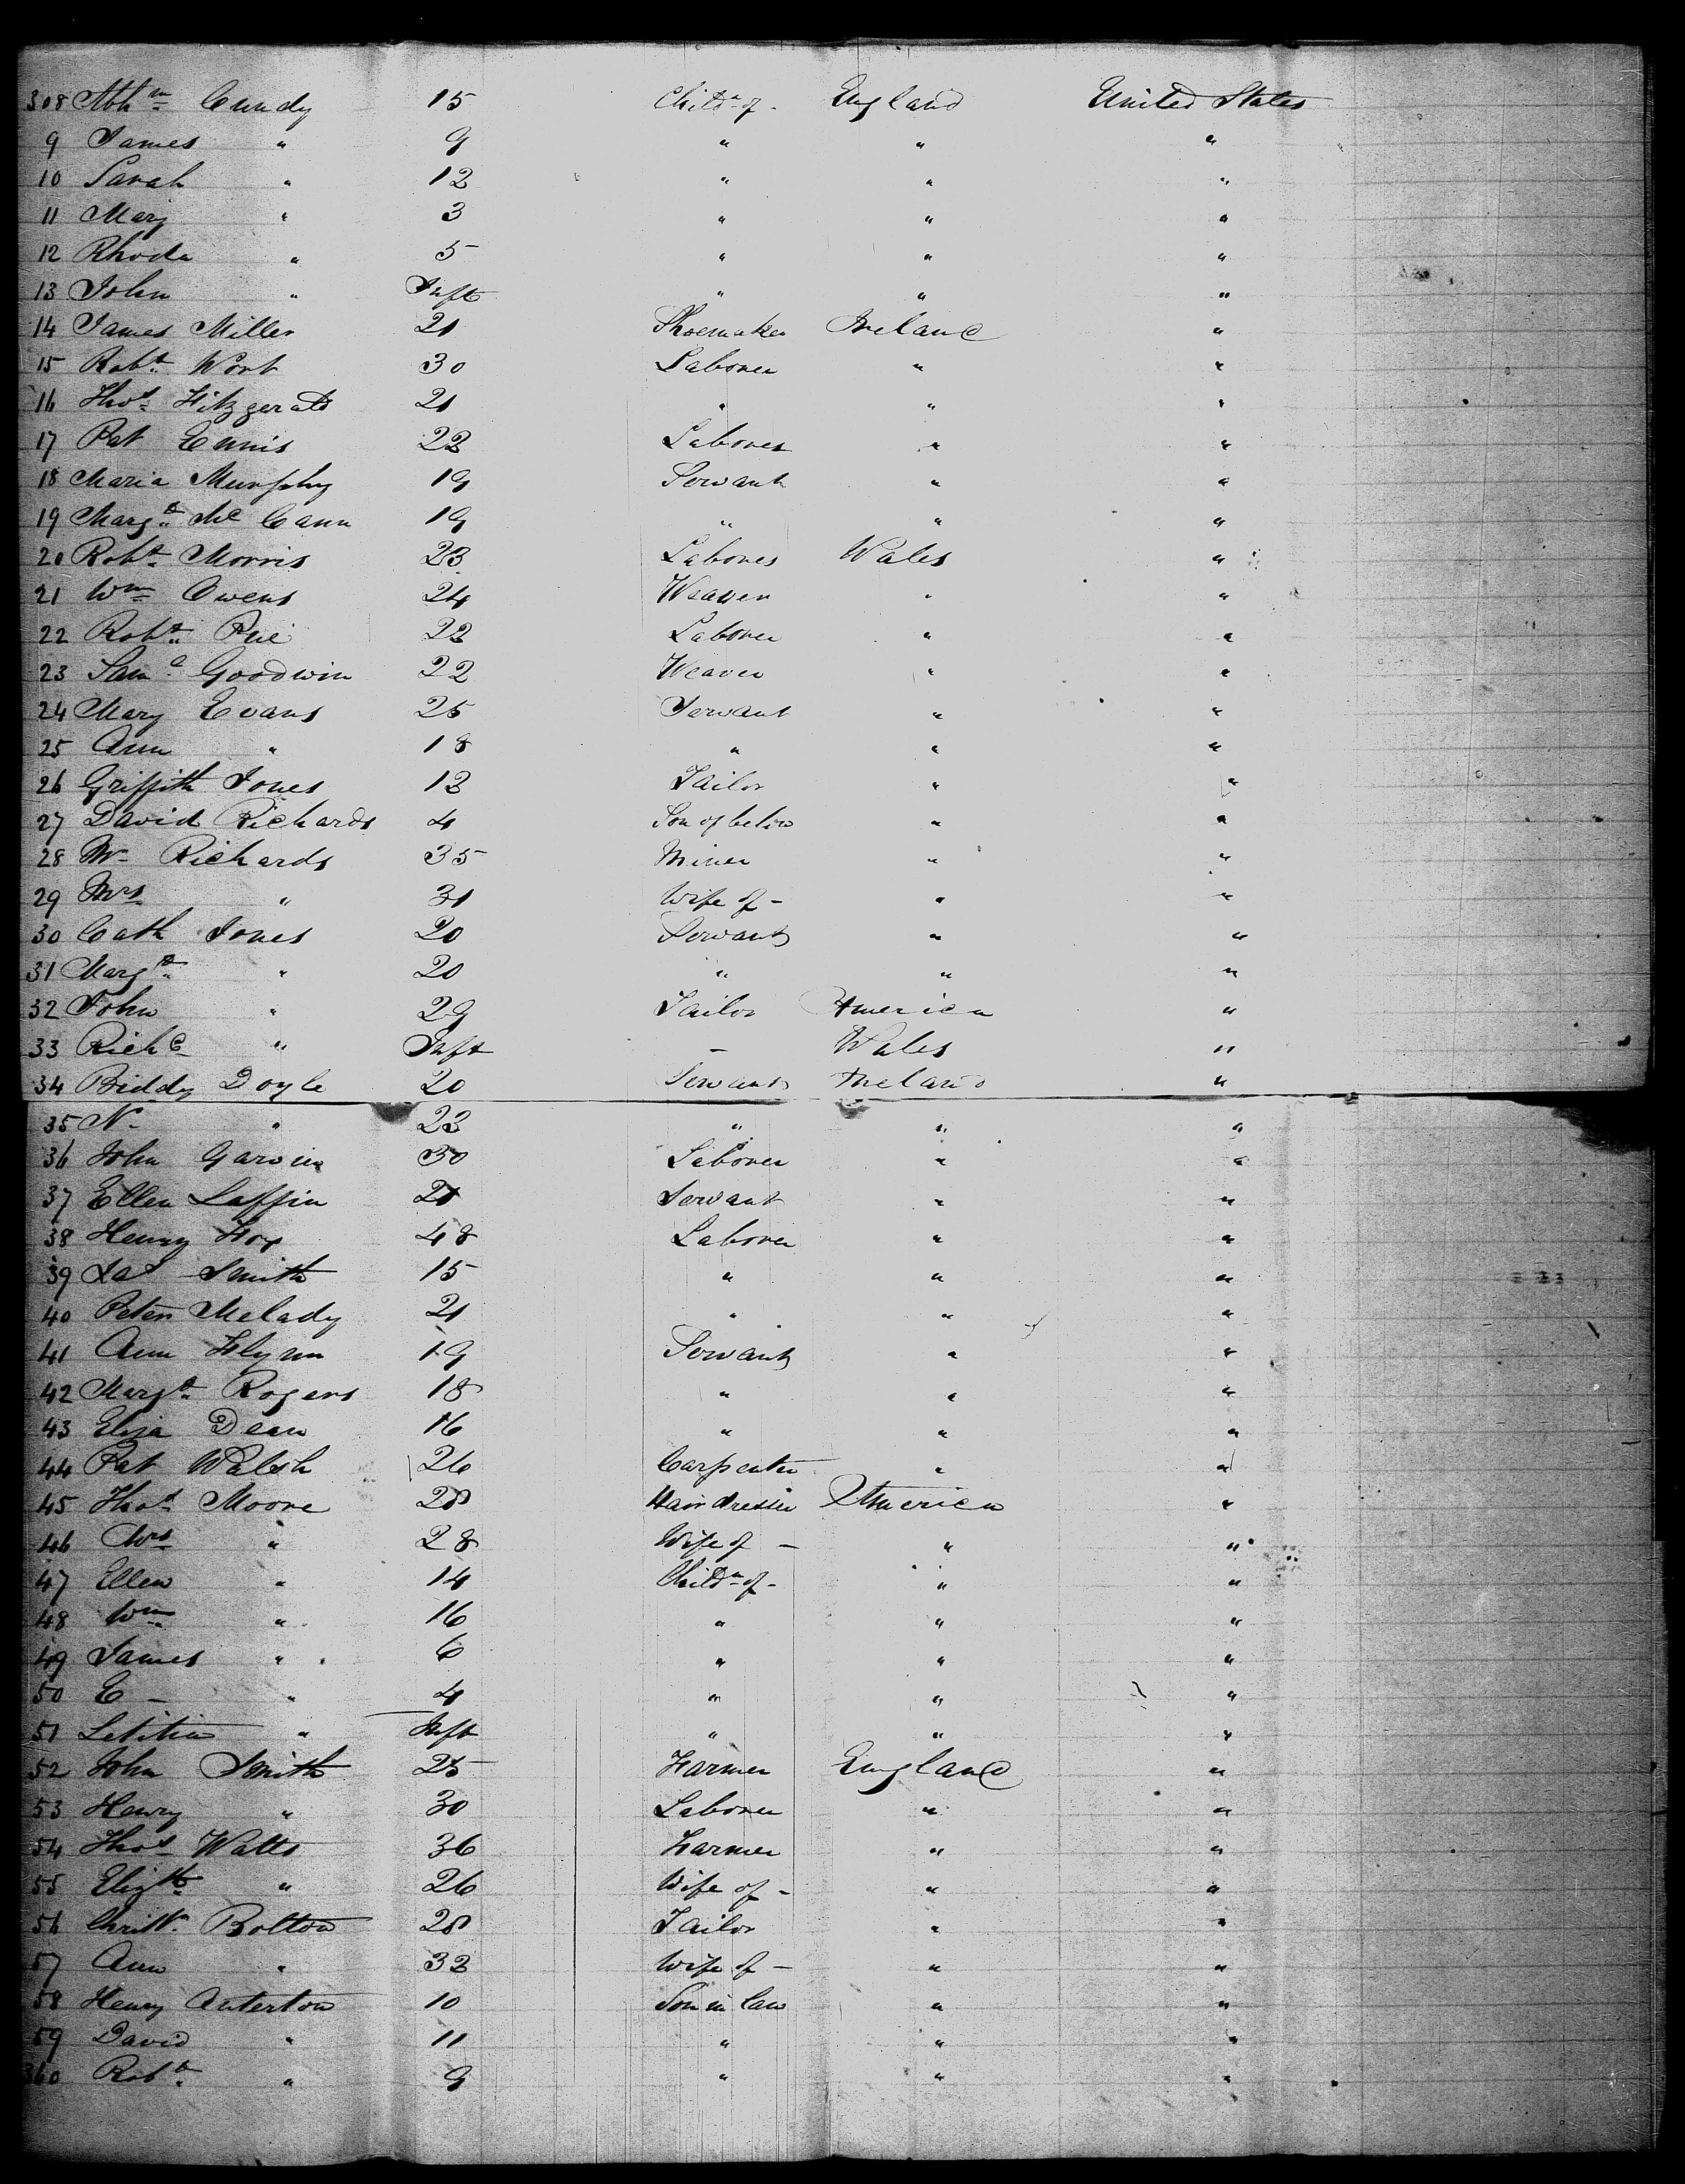 308 Abhm Cundy 15 Childn of - England United States
9 James " 9 " " "
10 Sarah " 12 " " "
11 Mary " 3 " " "
12 Rhoda " 5 " " "
13 John " Inft " " "
14 James Miller 21 Shoemaker Ireland "
15 Robt 30 Laborer " "
16 Thos Fitzgerald 21 " " "
17 Pat Ennis 22 Laborer " "
18 Maria Murphy 19 Servant " "
19 Margt McCann 19 " " "
20 Robt Morris 23 Laborer Wales "
21 Wm Owens 24 Weaver " "
22 Robt 22 Laborer " "
23 Saml Goodwin 22 Weaver " "
24 Mary Evans 25 Servant " "
25 Ann " 18 " " "
26 Griffith Jones 12 Tailor " "
27 David Richards 4 Son of below " "
28 Mr Richards 35 Miner " "
29 Mrs " 31 Wife of - " "
30 Cath Jones 20 Servant " "
31 Margt " 20 " " "
32 John " 29 Tailor America "
33 Richd " Inft - Wales "
34 Biddy Doyle 20 Servant Ireland "
35 N- " 23 " " "
36 John Garvin 30 Laborer " "
37 Ellen Laffin 21 Servant " "
38 Henry Fox 48 Laborer " "
39 Jas Smith 15 " " "
40 Peter Melady 21 " " "
41 Ann Flynn 19 Servant " "
42 Margt Rogers 18 " " "
43 Eliza Dean 16 " " "
44 Pat Walsh 26 Carpenter " "
45 Thos Moore 28 Hairdresser America "
46 Mrs " 28 Wife of - " "
47 Ellen " 14 Childn of - " "
48 Wm " 16 " " "
49 James " 6 " " "
50 E - " 4 " " "
51 Letitia " Inft " " "
52 John Smith 25 Farmer England "
53 Henry " 30 Laborer " "
54 Thos Watts 36 Farmer " "
55 Elizth " 26 Wife of - " "
56 Chrisr Bolton 28 Tailor " "
57 Ann " 32 Wife of - " "
58 Henry Anterton 10 Son in law " "
59 David " 11 " " "
360 Robt " 9 " " "